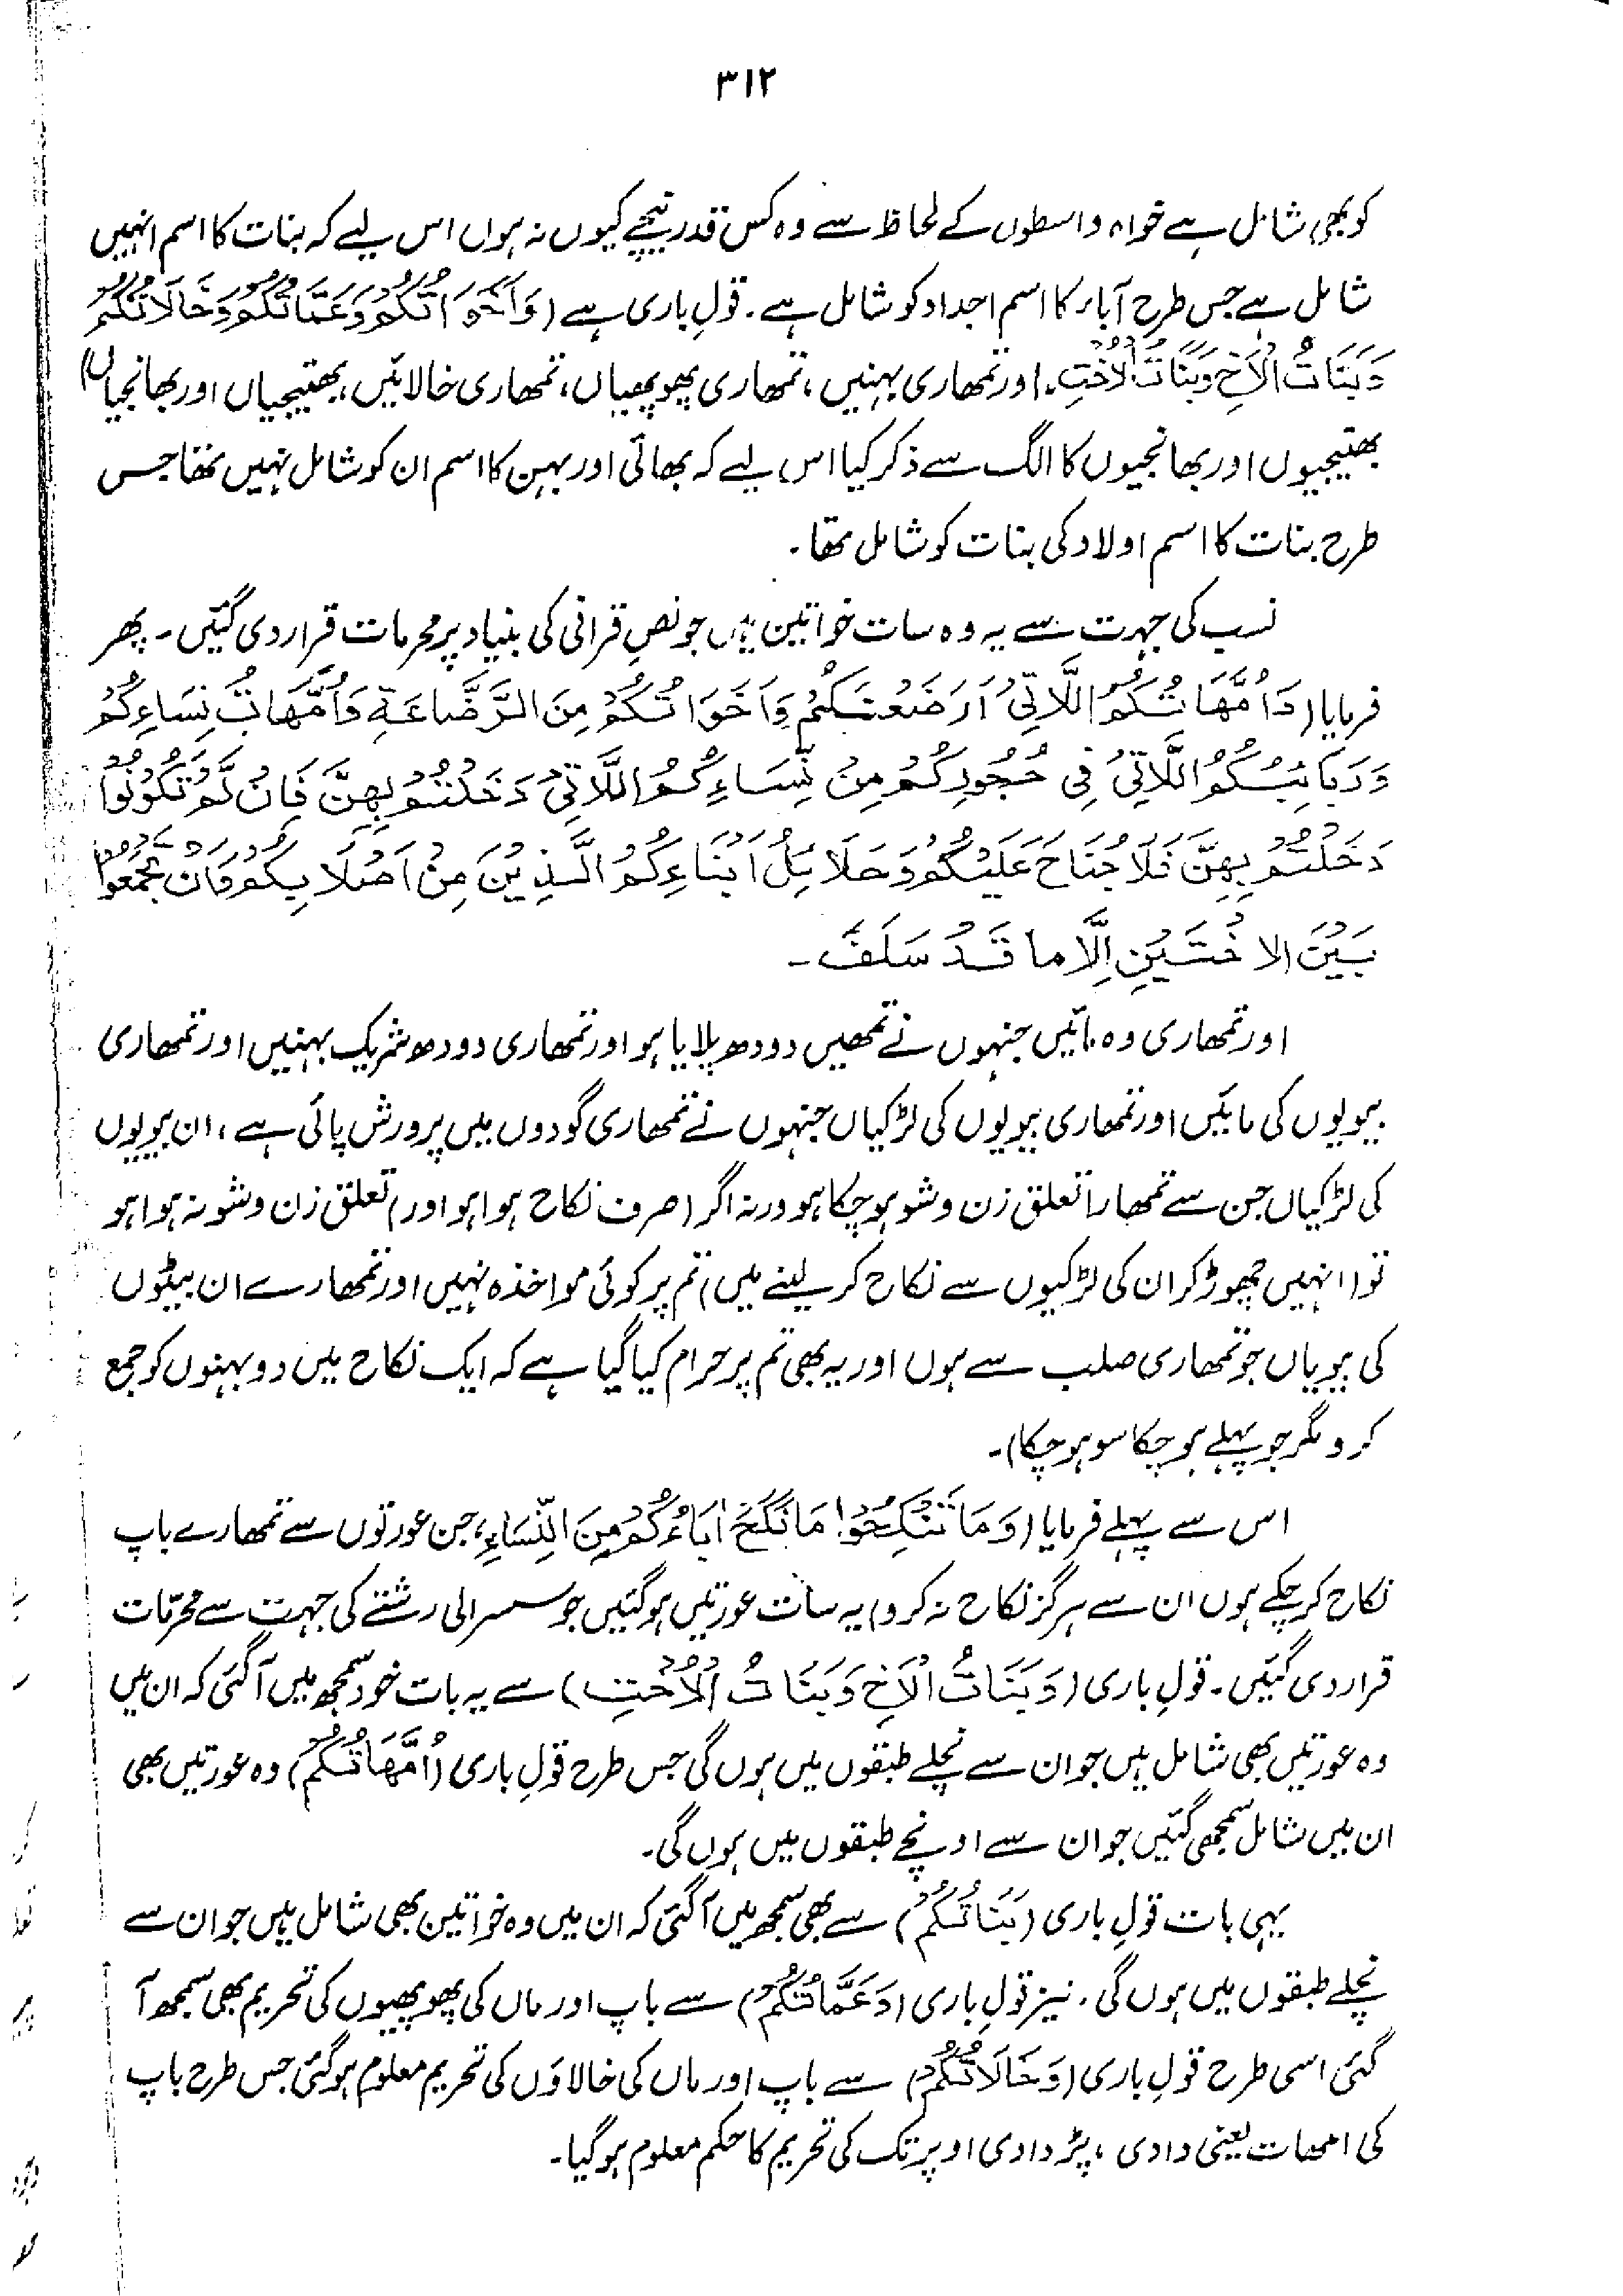 ۳۱۲
کو بھی شامل ہے خواہ واسطوں کے لحاظ سے وہ کس قدر نیچے کیوں نہ ہوں اس لیے کہ بنات کا اسم انہیں
شامل ہے جس طرح آباء کا اسم اجداد کو شامل ہے۔ قولِ باری ہے (وَاَخَوَاتُكُمْ وَعَمَّاتُكُمْ وَخَالَاتُكُمْ
وَبَنَاتُ الْاَخِ وَبَنَاتُ الْاُخْتِ، اور تمھاری بہنیں، تمھاری پھوپھیاں، تمھاری خالائیں، بھتیجیاں اور بھانجیاں)
بھتیجیوں اور بھانجیوں کا الگ سے ذکر کیا اس لیے کہ بھائی اور بہن کا اسم ان کو شامل نہیں تھا جس
طرح بنات کا اسم اولاد کی بنات کو شامل تھا۔
نسب کی جہت سے یہ وہ سات خواتین ہیں جو نصِ قرانی کی بنیاد پر محرمات قرار دی گئیں۔ پھر
فرمایا (وَاُمَّهَاتُكُمُ اللَّاتِیْ اَرْضَعْنَكُمْ وَاَخَوَاتُكُمْ مِنَ الرَّضَاعَةِ وَاُمَّهَاتُ نِسَاءِكُمْ
وَرَبَائِبُكُمُ اللَّاتِیْ فِی حُجُورِكُمْ مِنْ نِّسَاءِكُمُ اللَّاتِیْ دَخَلْتُمْ بِهِنَّ فَاِنْ لَّمْ تَكُوْنُوْا
دَخَلْتُمْ بِهِنَّ فَلَا جُنَاحَ عَلَيْكُمْ وَحَلَائِلُ اَبْنَاءِكُمُ الَّذِيْنَ مِنْ اَصْلَابِكُمْ وَاَنْ تَجْمَعُوْا
بَيْنَ الاُخْتَيْنِ اِلَّا مَا قَدْ سَلَفَ۔
اور تمھاری وہ مائیں جنہوں نے تمھیں دودھ پلایا ہو اور تمھاری دودھ شریک بہنیں اور تمھاری
بیویوں کی مائیں اور تمھاری بیویوں کی لڑکیاں جنہوں نے تمھاری گودوں میں پرورش پائی ہے، ان بیویوں
کی لڑکیاں جن سے تمھارا تعلق زن وشو ہو چکا ہو ورنہ اگر (صرف نکاح ہوا ہو اور) تعلق زن وشو نہ ہوا ہو
تو (انہیں چھوڑ کر ان کی لڑکیوں سے نکاح کر لینے میں) تم پر کوئی مواخذہ نہیں اور تمھارے ان بیٹوں
کی بیویاں جو تمھاری صلب سے ہوں اور یہ بھی تم پر حرام کیا گیا ہے کہ ایک نکاح میں دو بہنوں کو جمع
کرو مگر جو پہلے ہو چکا سو ہو چکا)۔
اس سے پہلے فرمایا (وَمَا تَنْكِحُوْا مَا نَكَحَ اٰبَاءُكُمْ مِنَ النِّسَاءِ، جن عورتوں سے تمھارے باپ
نکاح کر چکے ہوں ان سے ہرگز نکاح نہ کرو) یہ سات عورتیں ہو گئیں جو سسرالی رشتے کی جہت سے محرّمات
قرار دی گئیں۔ قولِ باری (وَبَنَاتُ الْاَخِ وَبَنَاتُ الْاُخْتِ) سے یہ بات خود سمجھ میں آ گئی کہ ان میں
وہ عورتیں بھی شامل ہیں جو ان سے نچلے طبقوں میں ہوں گی جس طرح قولِ باری (اُمَّهَاتُكُمْ) وہ عورتیں بھی
ان میں شامل سمجھی گئیں جو ان سے اونچے طبقوں میں ہوں گی۔
یہی بات قولِ باری (بَنَاتُكُمْ) سے بھی سمجھ میں آ گئی کہ ان میں وہ خواتین بھی شامل ہیں جو ان سے
نچلے طبقوں میں ہوں گی۔ نیز قولِ باری (وَعَمَّاتُكُمْ) سے باپ اور ماں کی پھوپھیوں کی تحریم بھی سمجھ آ
گئی اسی طرح قولِ باری (وَخَالَاتُكُمْ) سے باپ اور ماں کی خالاؤں کی تحریم معلوم ہو گئی جس طرح باپ
کی امھات یعنی دادی، پڑدادی اوپر تک کی تحریم کا حکم معلوم ہو گیا۔